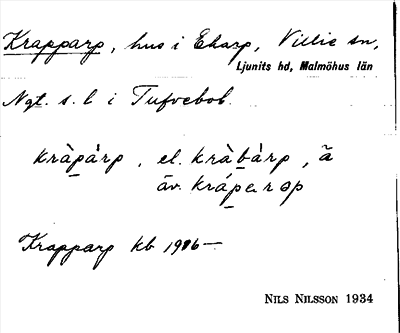 Krapparp, hus i Eharp, Villie sn,
Ljunits hd, Malmöhus län
Ngt. s. l. i Tufvebol.
kràpàrp, el. kràbàrp, ã
äv. kráparəp
Krapparp kb 1906—
NILS NILSSON 1934